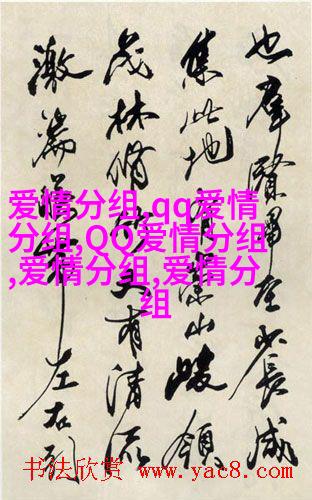 也羣賢畢至少長咸
集此地有崇山峻領
茂林脩竹又有清流
激湍暎帶左右引
爱情分组,qq爱情
分组,QQ爱情分组
,爱情分组,爱情分
组
书法欣赏 www.yac8.com